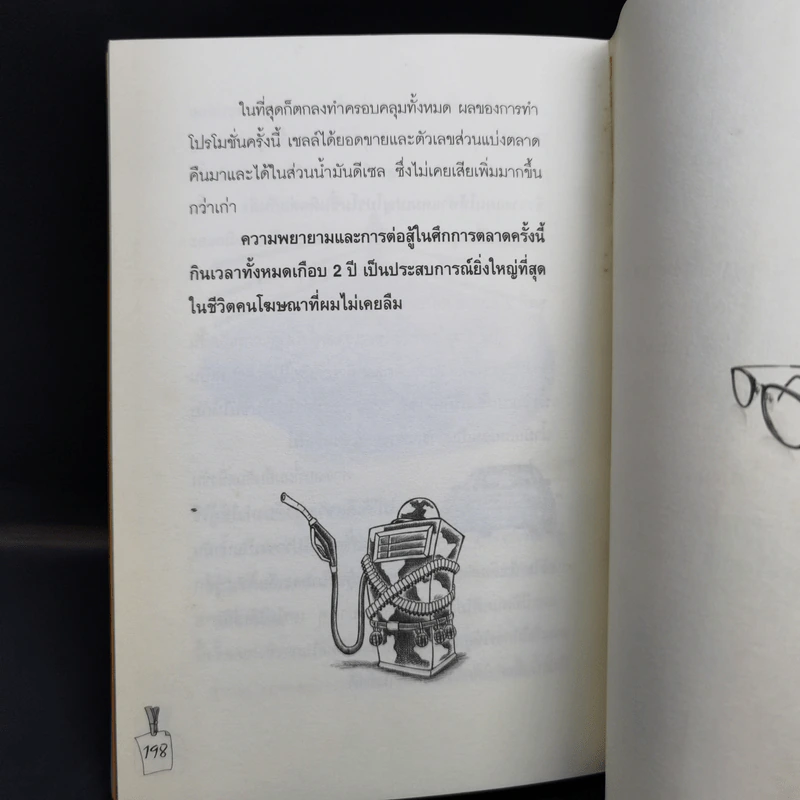 ในที่สุดก็ตกลงทำครอบคลุมทั้งหมด ผลของการทำ
โปรโมชั่นครั้งนี้ เชลล์ได้ยอดขายและตัวเลขส่วนแบ่งตลาด
คืนมาและได้ในส่วนน้ำมันดีเซล ซึ่งไม่เคยเสียเพิ่มมากขึ้น
กว่าเก่า
ความพยายามและการต่อสู้ในศึกการตลาดครั้งนี้
กินเวลาทั้งหมดเกือบ 2 ปี เป็นประสบการณ์ยิ่งใหญ่ที่สุด
ในชีวิตคนโฆษณาที่ผมไม่เคยลืม
198